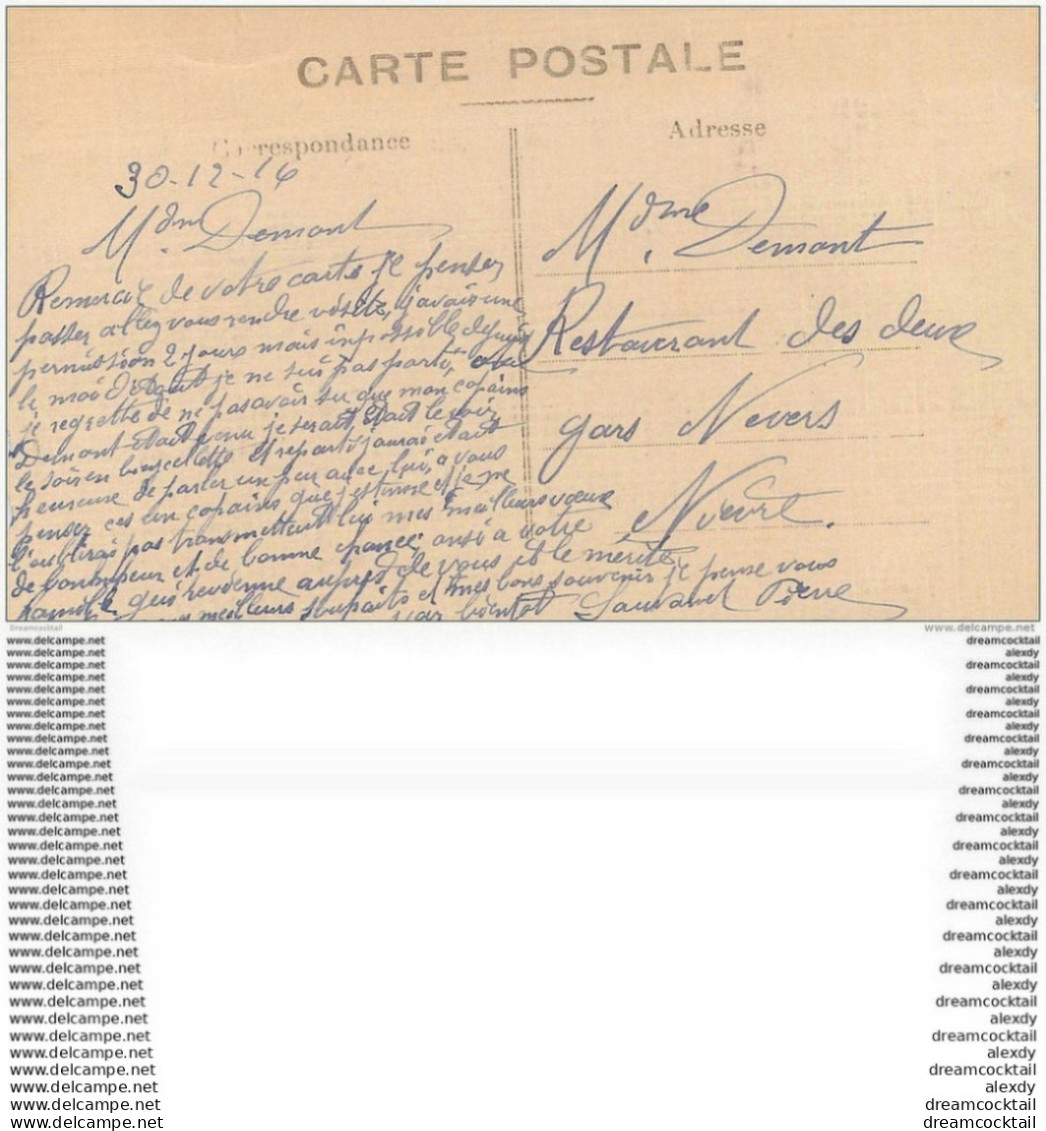 CARTE POSTALE
Correspondance
30-12-14
Mdme Demont
Remercie de votre carte je penser
passer allez vous rendre visite, j'avais une
permission 2 jours mais inpossible depuis
le moi d'Août je ne sui pas parti,
je regrette de ne pas avoir su que mon copains
Demont était venu je serait était le voir
le soir en bicyclette et reparti jaurai était
heureuse de parler un peu avec lui, a vous
penser ces un copains que j'estime et je ne
l'oublirai pas transmettant lui mes meilleurs vœux
de bonheur et de bonne chance, ausi a votre
famille qu'il revienne auprès de vous il le mérite
meilleurs souhaits et mes bons souvenir je pense vous
bientôt Pierre
Adresse
Mdme Demont
Restaurant des deux
gars Nevers
Nièvre.
Dreamcocktail
www.delcampe.net
www.delcampe.net dreamcocktail
www.delcampe.net alexdy
www.delcampe.net dreamcocktail
www.delcampe.net alexdy
www.delcampe.net dreamcocktail
www.delcampe.net alexdy
www.delcampe.net dreamcocktail
www.delcampe.net alexdy
www.delcampe.net dreamcocktail
www.delcampe.net alexdy
www.delcampe.net dreamcocktail
www.delcampe.net alexdy
www.delcampe.net dreamcocktail
www.delcampe.net alexdy
www.delcampe.net dreamcocktail
www.delcampe.net alexdy
www.delcampe.net dreamcocktail
www.delcampe.net alexdy
www.delcampe.net dreamcocktail
www.delcampe.net alexdy
www.delcampe.net dreamcocktail
www.delcampe.net alexdy
www.delcampe.net dreamcocktail
www.delcampe.net alexdy
www.delcampe.net dreamcocktail
www.delcampe.net alexdy
www.delcampe.net dreamcocktail
www.delcampe.net alexdy
www.delcampe.net dreamcocktail
www.delcampe.net alexdy
www.delcampe.net dreamcocktail
www.delcampe.net alexdy
www.delcampe.net dreamcocktail
www.delcampe.net alexdy
www.delcampe.net dreamcocktail
www.delcampe.net dreamcocktail